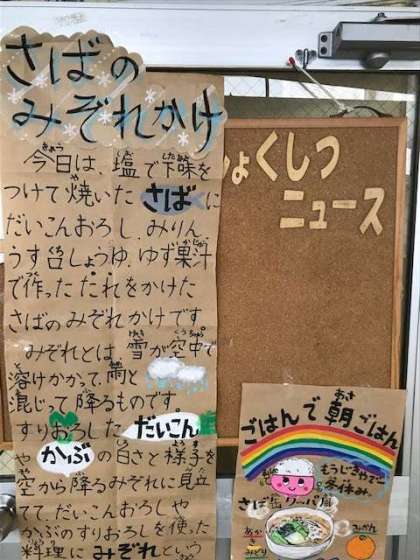 さばの
みぞれかけ
今日は、塩で下味を
つけて焼いたさばに
だいこんおろし、みりん、
うす口しょうゆ、ゆず果汁
で作ったたれをかけた
さばのみぞれかけです
みぞれとは、雪が空中で
溶けかかって、雨と
混じって降るものです。
すりおろしただいこん
かぶの白さと様子を
空から降るみぞれに見立
てて、だいこんおろしや
かぶのすりおろしを使った
料理にみぞれという
ょくしつ
ニュース
ごはんで朝ごはん
もうじきやで〜
冬休み。
さば缶クッパ風
あか
みどり
みかん